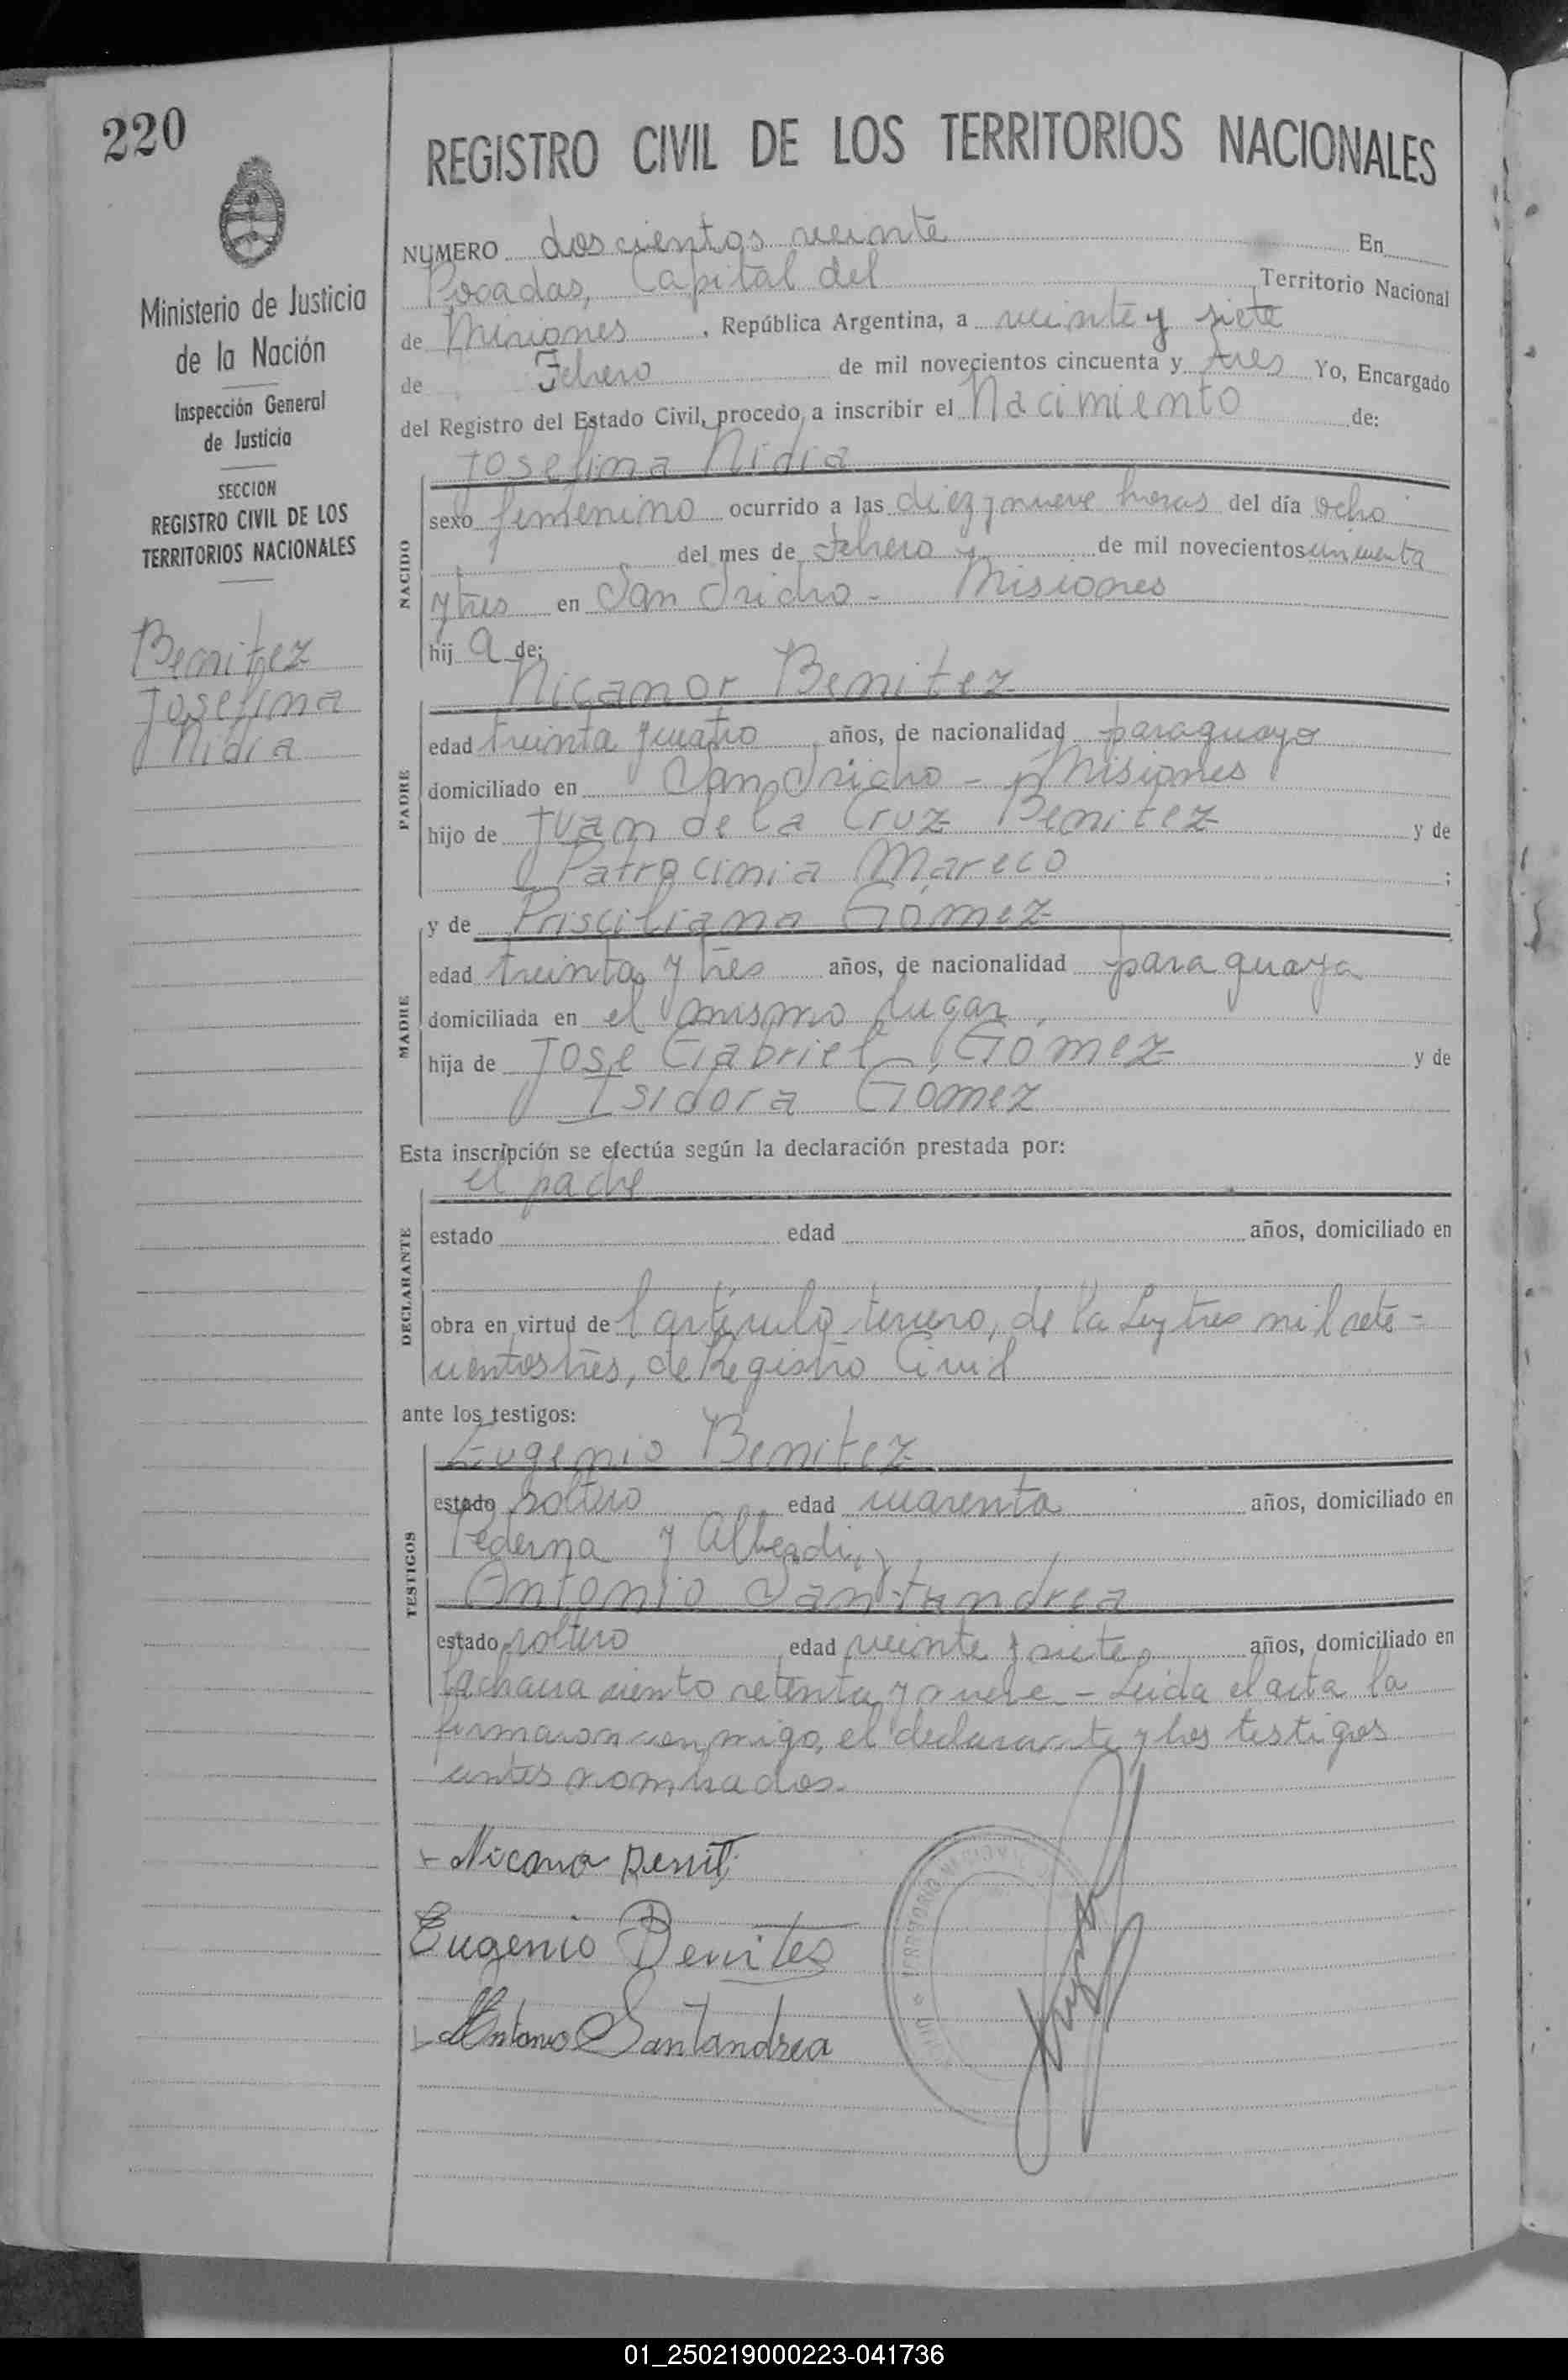 220
Ministerio de Justicia
de la Nación
Inspección General
de Justicia
SECCION
REGISTRO CIVIL DE LOS
TERRITORIOS NACIONALES
Benitez
Josefina
Nidia
REGISTRO CIVIL DE LOS TERRITORIOS NACIONALES
NUMERO doscientos veinte En
Posadas, Capital del Territorio Nacional
de Misiones, República Argentina, a veinte y siete
de Febrero de mil novecientos cincuenta y tres Yo, Encargado
del Registro del Estado Civil, procedo a inscribir el Nacimiento de:
NACIDO
Josefina Nidia
sexo femenino ocurrido a las diez y nueve horas del día ocho
del mes de Febrero de mil novecientos cincuenta
y tres en San Isidro - Misiones
hij a de:
PADRE
Nicanor Benitez
edad treinta y cuatro años, de nacionalidad paraguayo
domiciliado en San Isidro - Misiones
hijo de Juan de la Cruz Benitez y de
Patrocinia Mareco ;
MADRE
y de Prisciliana Gómez
edad treinta y tres años, de nacionalidad paraguaya
domiciliada en el mismo lugar,
hija de Jose Gabriel Gómez y de
Isidora Gómez
Esta inscripción se efectúa según la declaración prestada por:
DECLARANTE
el padre
estado edad años, domiciliado en
obra en virtud del artículo tercero, de la Ley tres mil sete-
cientos tres, de Registro Civil
ante los testigos:
TESTIGOS
Eugenio Benitez
estado soltero edad cuarenta años, domiciliado en
Pederna y Alberdi, y
Antonio Santandrea
estado soltero edad veinte y siete años, domiciliado en
ciento setenta y nueve - Leida el acta la
firmaron conmigo, el declarante y los testigos
antes nombrados.
Nicanor Benit
Eugenio Benites
Antonio Santandrea
01_250219000223-041736